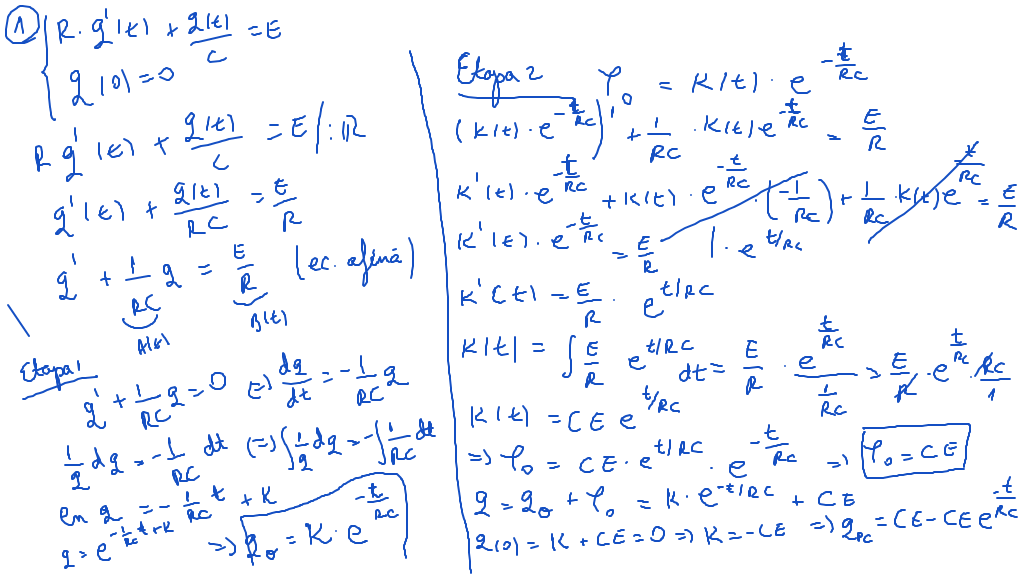 ① { R·q'(t) + q(t)/C = E
q(0) = 0
R q'(t) + q(t)/C = E |:R
q'(t) + q(t)/RC = E/R
q' + 1/RC q = E/R (ec. afină)
A(t) B(t)
Etapa 1
q' + 1/RC q = 0 (=) dq/dt = -1/RC q
1/q dq = -1/RC dt (=) ∫ 1/q dq = -∫ 1/RC dt
ln q = -1/RC t + K
q = e^(-1/RC t + K) => q₀ = K·e^(-t/RC)
Etapa 2 φ₀ = K(t)·e^(-t/RC)
(K(t)·e^(-t/RC))' + 1/RC ·K(t) e^(-t/RC) = E/R
K'(t)·e^(-t/RC) + K(t)·e^(-t/RC)·(-1/RC) + 1/RC·K(t) e^(-t/RC) = E/R
K'(t)·e^(-t/RC) = E/R |·e^(t/RC)
K'(t) = E/R · e^(t/RC)
K(t) = ∫ E/R e^(t/RC) dt = E/R · e^(t/RC)/(1/RC) = E/R·e^(t/RC)·RC/1
K(t) = CE e^(t/RC)
=> φ₀ = CE·e^(t/RC)·e^(-t/RC) => φ₀ = CE
q = q₀ + φ₀ = K·e^(-t/RC) + CE
q(0) = K + CE = 0 => K = -CE => q_PC = CE - CE e^(-t/RC)